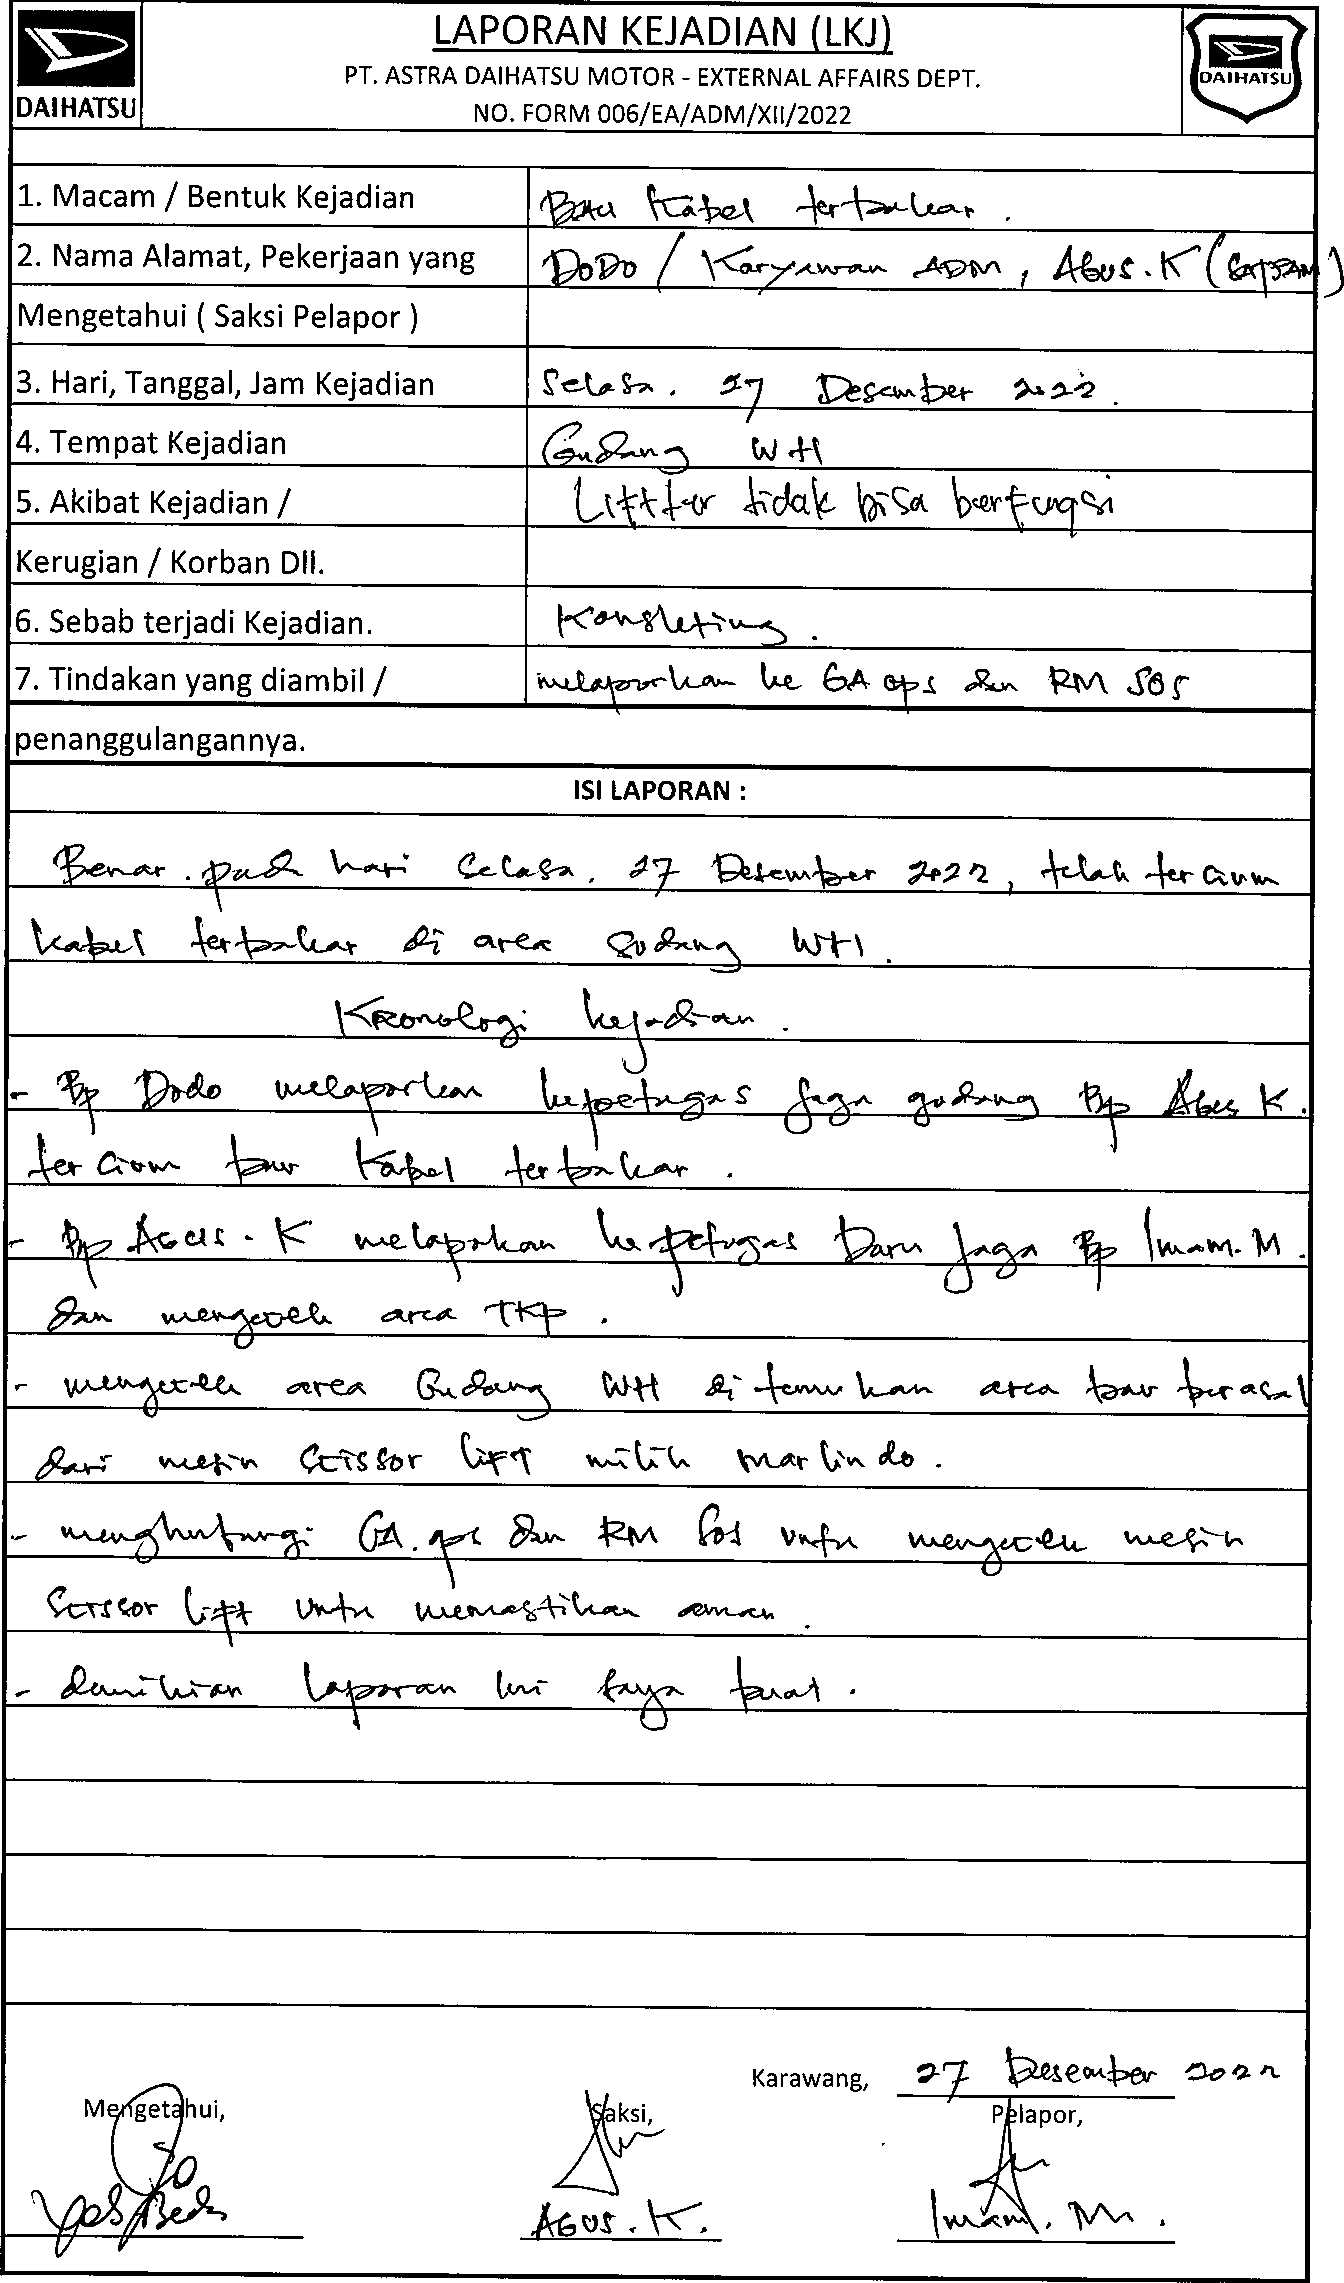 LAPORAN KEJADIAN (LKJ)
PT. ASTRA DAIHATSU MOTOR - EXTERNAL AFFAIRS DEPT.
NO. FORM 006/EA/ADM/XII/2022
DAIHATSU
DAIHATSU
1. Macam / Bentuk Kejadian Bau Kabel terbakar .
2. Nama Alamat, Pekerjaan yang DODO / Karyawan ADM , AGUS . K (SATPAM)
Mengetahui ( Saksi Pelapor )
3. Hari, Tanggal, Jam Kejadian Selasa . 27 Desember 2022 .
4. Tempat Kejadian Gudang WH
5. Akibat Kejadian / Liftter tidak bisa berfugsi
Kerugian / Korban Dll.
6. Sebab terjadi Kejadian. Konsleting .
7. Tindakan yang diambil / melaporkan ke GA ops dan RM SOS
penanggulangannya.
ISI LAPORAN :
Benar . pada hari Selasa . 27 Desember 2022 , telah tercium
kabel terbakar di area gudang WH .
Kronologi kejadian .
- Bp Dodo melaporkan kepetugas jaga gudang Bp Agus K .
tercium bau kabel terbakar .
- Bp AGUS . K melaporkan ke petugas Daru jaga Bp Imam . M .
dan mengecek area TKP .
- mengecek area Gudang WH di temukan area bau berasal
dari mesin scissor lift milik marlindo .
- menghubungi GA . ops dan RM SOS untu mengecek mesin
scissor lift untu memastikan aman .
- demikian laporan ini saya buat .
Karawang, 27 Desember 2022
Mengetahui, Saksi, Pelapor,
AGUS . K . Imam . M .